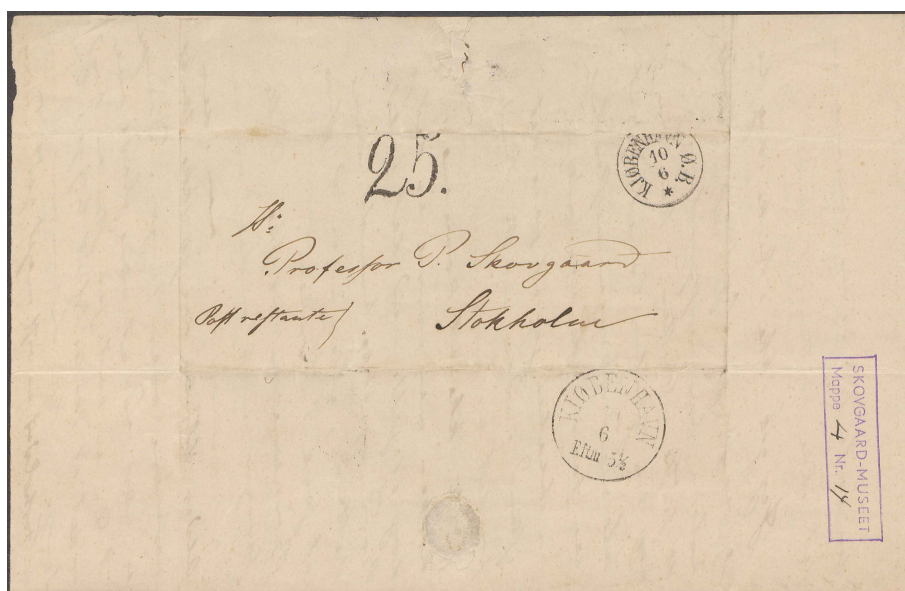 25.
KJØBENHAVN Ø.B.
10
6
Hr:
Professor P. Skovgaard
Post restante)
Stokholm
KJØBENHAVN
6
Eftm 5½
SKOVGAARD-MUSEET
Mappe 4 Nr. 14